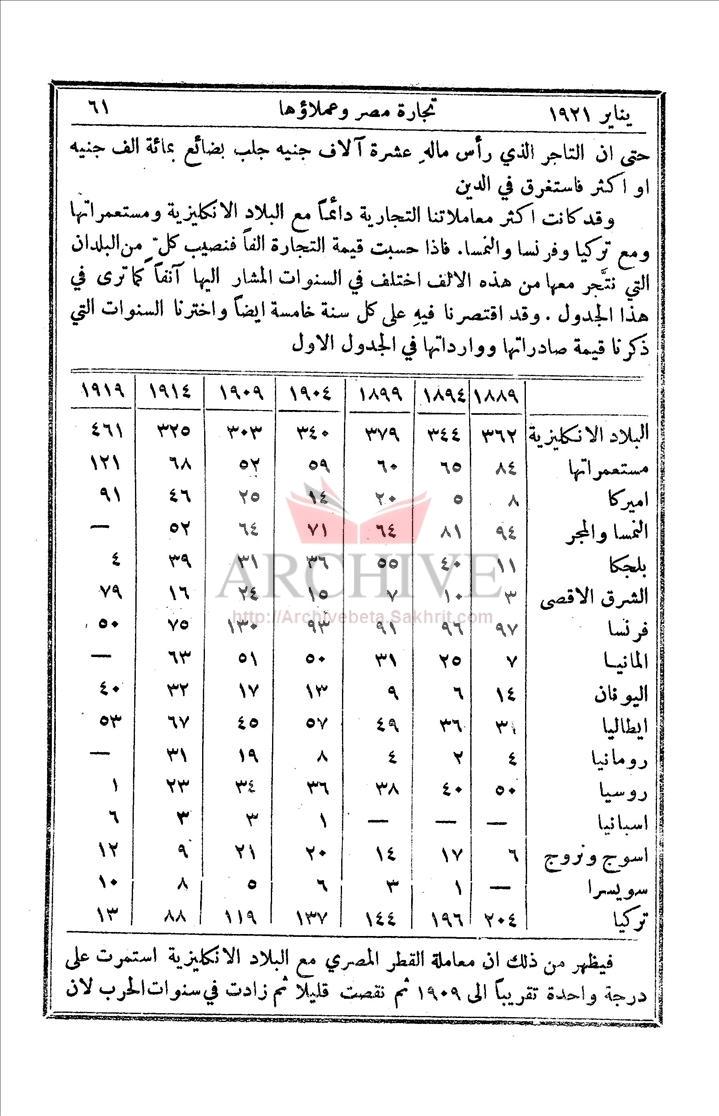 يناير ١٩٢١ تجارة مصر وعملاؤها ٦١
حتى ان التاجر الذي رأس ماله عشرة آلاف جنيه جلب بضائع بمائة الف جنيه
او اكثر فاستغرق في الدين
وقد كانت اكثر معاملاتنا التجارية دائماً مع البلاد الانكليزية ومستعمراتها
ومع تركيا وفرنسا والنمسا. فاذا حسبت قيمة التجارة الفاً فنصيب كلٍّ من البلدان
التي نتَّجر معها من هذه الالف اختلف في السنوات المشار اليها آنفاً كما ترى في
هذا الجدول. وقد اقتصرنا فيهِ على كل سنة خامسة ايضاً واخترنا السنوات التي
ذكرنا قيمة صادراتها ووارداتها في الجدول الاول
١٨٨٩ ١٨٩٤ ١٨٩٩ ١٩٠٤ ١٩٠٩ ١٩١٤ ١٩١٩
البلاد الانكليزية ٣٦٢ ٣٤٤ ٣٧٩ ٣٤٠ ٣٠٣ ٣٢٥ ٤٦١
مستعمراتها ٨٤ ٦٥ ٦٠ ٥٩ ٥٢ ٦٨ ١٢١
اميركا ٨ ٥ ٢٠ ١٤ ٢٥ ٤٦ ٩١
النمسا والمجر ٩٤ ٨١ ٦٤ ٧١ ٦٤ ٥٢ —
بلجكا ١١ ٤٠ ٥٥ ٣٦ ٣١ ٣٩ ٤
الشرق الاقصى ٣ ١٠ ٧ ١٥ ٢٤ ١٦ ٧٩
فرنسا ٩٧ ٩٦ ٩١ ٩٣ ١٣٠ ٧٥ ٥٠
المانيا ٧ ٢٥ ٣١ ٥٠ ٥١ ٦٣ —
اليونان ١٤ ٦ ٩ ١٣ ١٧ ٣٢ ٤٠
ايطاليا ٣١ ٣٦ ٤٩ ٥٧ ٤٥ ٦٧ ٥٣
رومانيا ٤ ٢ ٤ ٨ ١٩ ٣١ —
روسيا ٥٠ ٤٠ ٣٨ ٣٦ ٣٤ ٢٣ ١
اسبانيا — — — ١ ٣ ٣ ٦
اسوج ونروج ٦ ١٧ ١٤ ٢٠ ٢١ ٩ ١٢
سويسرا — ١ ٣ ٦ ٥ ٨ ١٠
تركيا ٢٠٤ ١٩٦ ١٤٤ ١٣٧ ١١٩ ٨٨ ١٣
فيظهر من ذلك ان معاملة القطر المصري مع البلاد الانكليزية استمرت على
درجة واحدة تقريباً الى ١٩٠٩ ثم نقصت قليلاً ثم زادت في سنوات الحرب لان
ARCHIVE
http://Archivebeta.Sakhrit.com